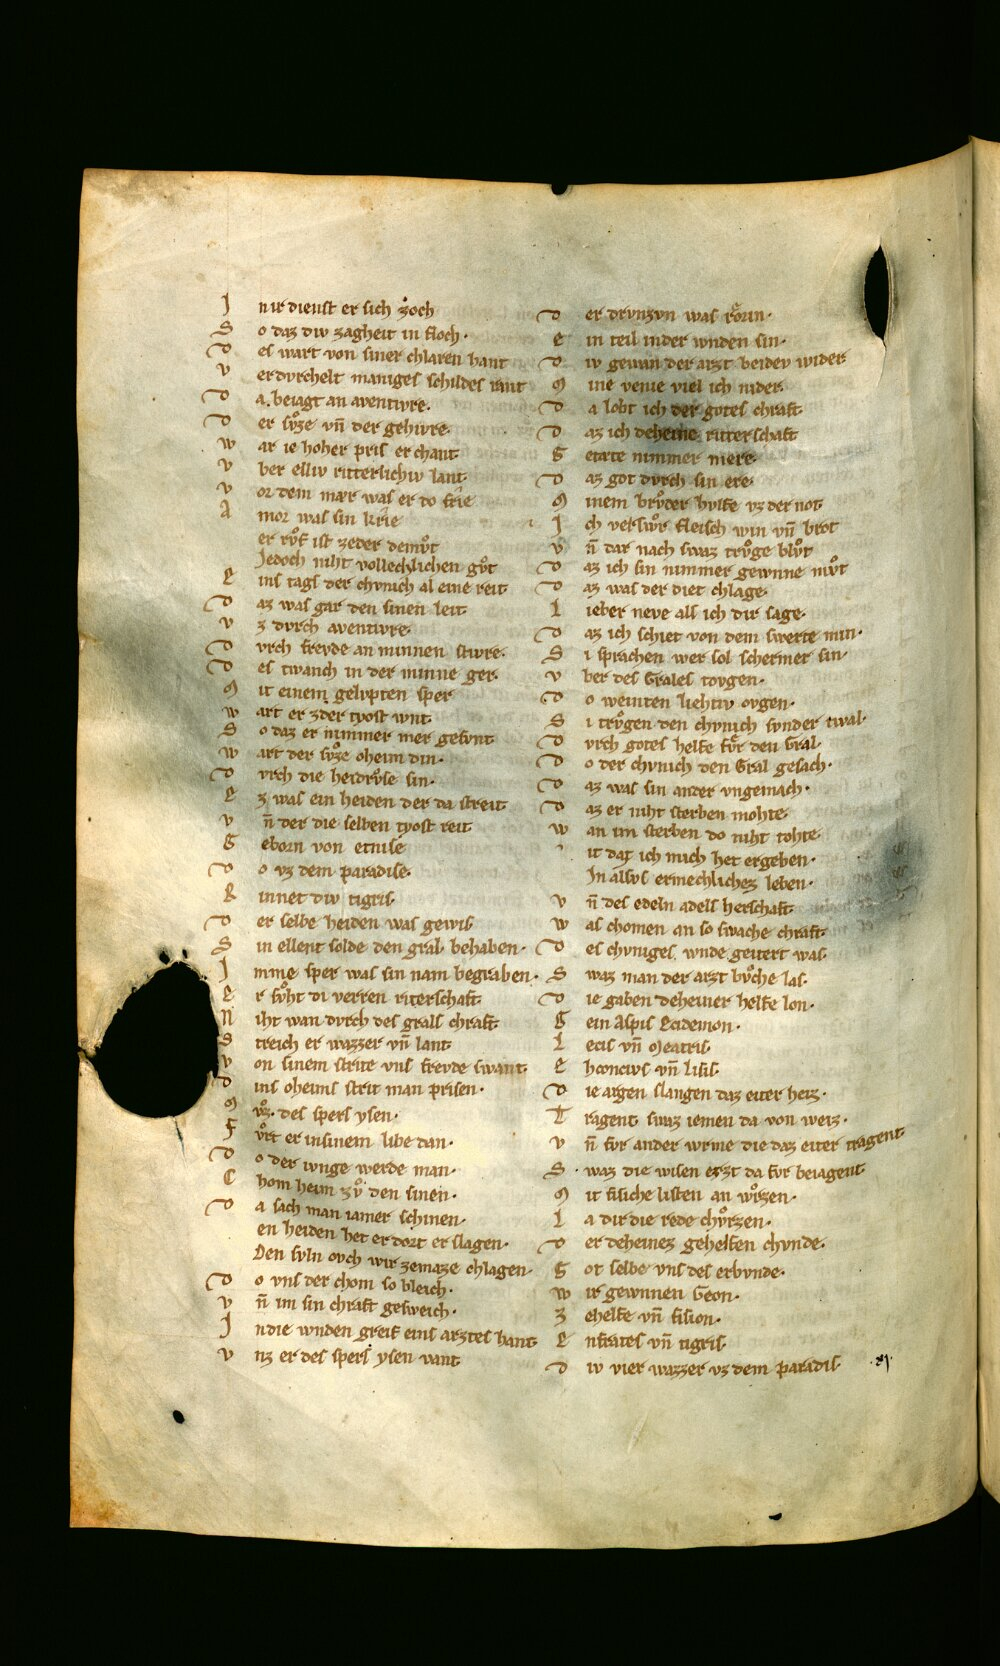 J n ir dienst er sich zoͮch
S o daz div zagheit in floch·
D es wart von siner chlaren hant
V erdvrchelt maniges schildes rant
D a beiagt an aventivre·
D er svͦze vn̄ der gehivre·
W ar ie hoher pris er chant·
V ber elliv ritterlichiv lant·
V or dem mær was er do frie
A mor was sin krîe
er rvͦf ist zeder demvͦt
Jedoch niht vollechlichen gvͦt
E ins tags der chvnich al eine reit
D az was gar den sinen leit
V z dvrch aventivre·
D vrch frevde an minnen stivre·
D es twanch in der minne ger·
M it einem gelvpten sper
W art er zder tyost wnt·
S o daz er nimmer mer gesvnt
W art der svͦze oheim din·
D vrch die heidrvͦse sin·
E z was ein heiden der da streit
V n̄ der die selben tyost reit
G eborn von etnise
D o vz dem paradise·
R innet div tigris·
D er selbe heiden was gewis·
S in ellent solde den gral behaben·
J mme sper was sin nam begraben·
E r svͦht di verren riterschaft·
N iht wan dvrch des grals chraft·
S treich er wazzer vn̄ lant
V on sinem strite vns frevde swant·
D ins oheims strit man prisen·
M vͦz· des spers ysen·
F vͦrt er insinem libe dan·
D o der ivnge werde man·
C hom heim zvͦ den sinen·
D a sach man iamer schinen·
en heiden het er dort er slagen·
Den svln ovch wir zemaze chlagen·
D o vns der chom so bleich·
V n̄ im sin chraft gesweich·
J ndie wnden greif eins arztes hant
V nz er des spers ysen vant
D er drvnzvn was rœrin·
E in teil inder wnden sin·
D iv gewan der arzt beidev wider
M ine venie viel ich nider·
D a lobt ich der gotes chraft
D az ich deheine ritterschaft
G etæte nimmer mere·
D az got dvrch sin ere·
M inem brvͦder hvlfe vz der not
J ch verswͦr fleisch win vn̄ brot
V n̄ dar nach swaz trvͦge blvͦt
D az ich sin nimmer gewnne mvͦt
D az was der diet chlage·
L ieber neve als ich dir sage·
D az ich schiet von dem swerte min·
S i sprachen wer sol schermer sin·
V ber des Grales tovgen·
D o weinten liehtiv ovgen·
S i trvͦgen den chvnich svnder twal·
D vrch gotes helfe fvͦr den Gral·
D o der chvnich den Gral gesach·
D az was sin ander vngemach·
D az er niht sterben mohte·
W an im sterben do niht tohte·
it daz ich mich het ergeben·
In alsvs ermechlichez leben·
V n̄ des edeln adels herschaft·
W as chomen an so swache chraft·
D es chvniges wnde geitert was·
S waz man der arzt bvͦche las·
D ie gaben deheiner helfe lon·
G ein Aspis Ecidemon·
L ecis vn̄ Meatris·
E hcontivs vn̄ lisis·
D ie argen slangen daz eiter heiz·
T ragent swaz iemen da von weiz·
V n̄ fvr ander wrme die daz eiter tragent·
S waz die wisen erzt da fvr beiagent
M it fisiche listen an wͦrzen·
L a dir die rede chvͦrzen·
D er deheinez gehelfen chvnde·
G ot selbe vns des erbvnde·
W ir gewnnen Geon·
Z ehelfe vn̄ fision·
E nfrates vn̄ tigris·
D iv vier wazzer vz dem paradis·